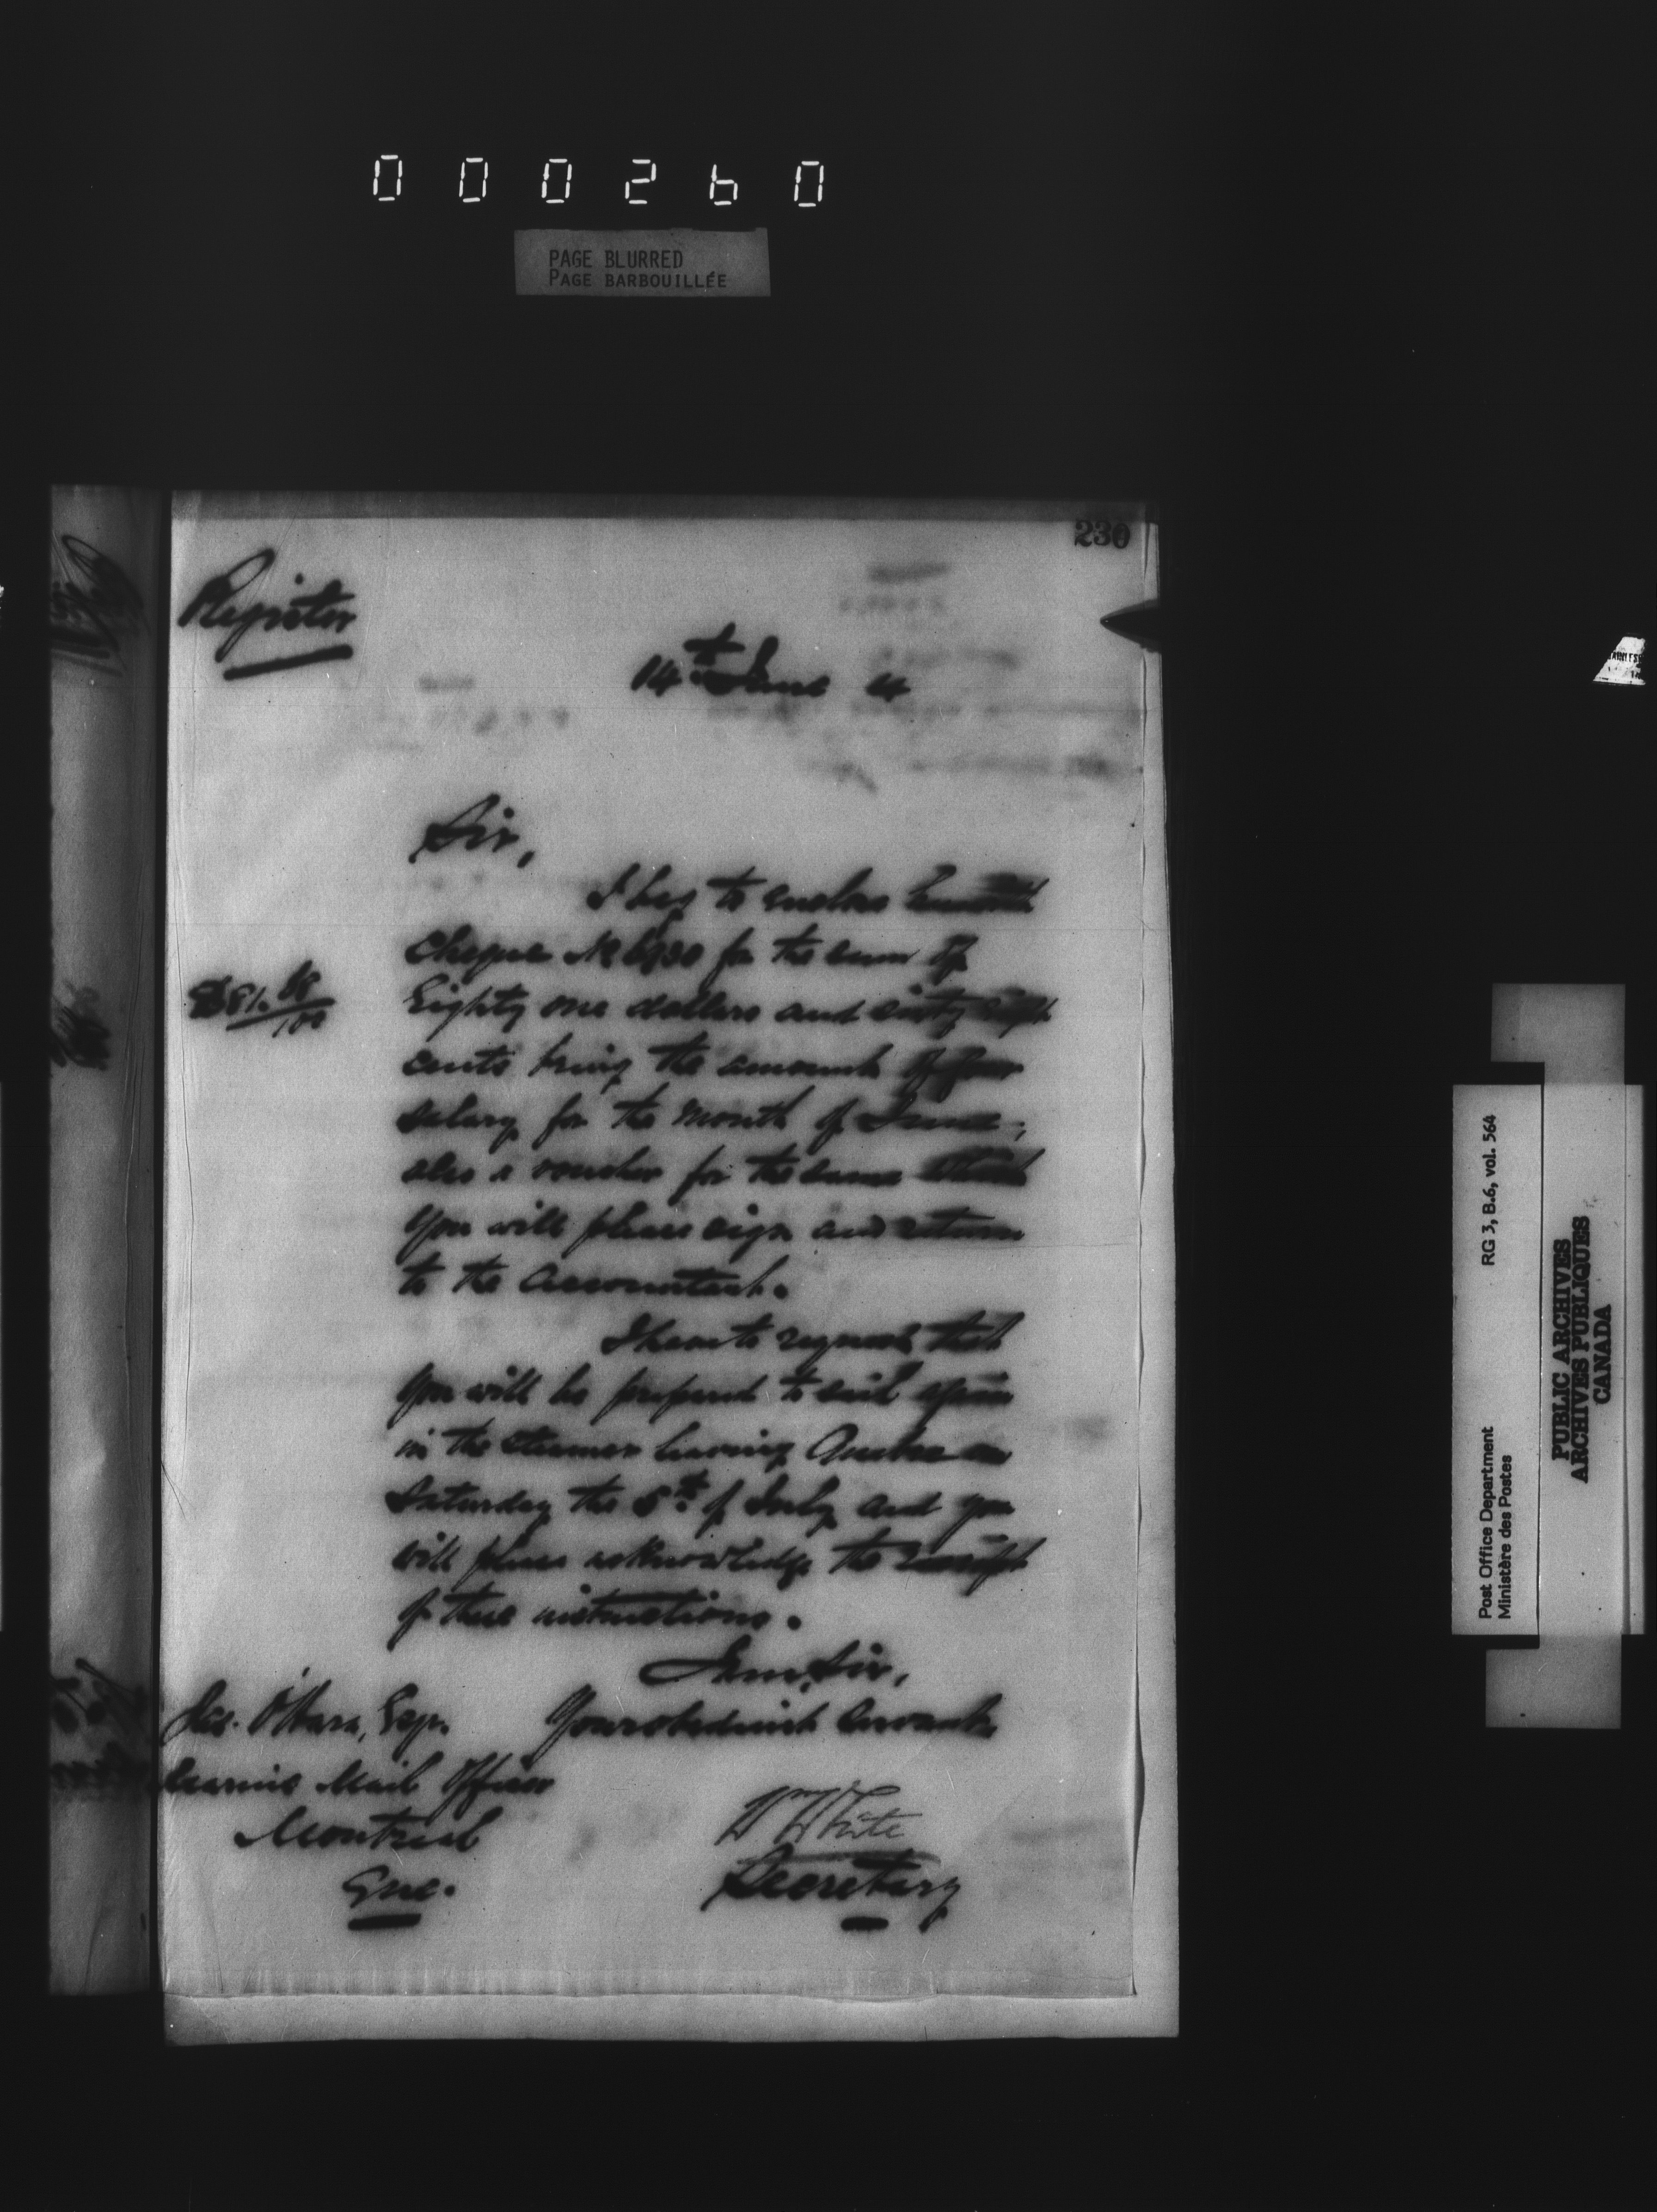 000260
PAGE BLURRED
PAGE BARBOUILLÉE
230
Register
14th June 4
Sir,
I beg to enclose herewith
Cheque No 6930 for the sum of
$81. 68/100
Eighty one dollars and sixty eight
cents being the amount of your
salary for the month of June;
also a voucher for the same which
you will please sign and return
to the Accountant.
I have to request that
you will be prepared to sail again
in the steamer leaving Quebec on
Saturday the 5th of July and you
will please acknowledge the receipt
of these instructions.
I am, Sir,
Your obedient Servant
Jas. O'Hara, Esqr.
Marine Mail Officer
Montreal
Que.
Wm White
Secretary
Post Office Department RG 3, B.6, vol. 564
Ministère des Postes
PUBLIC ARCHIVES
ARCHIVES PUBLIQUES
CANADA